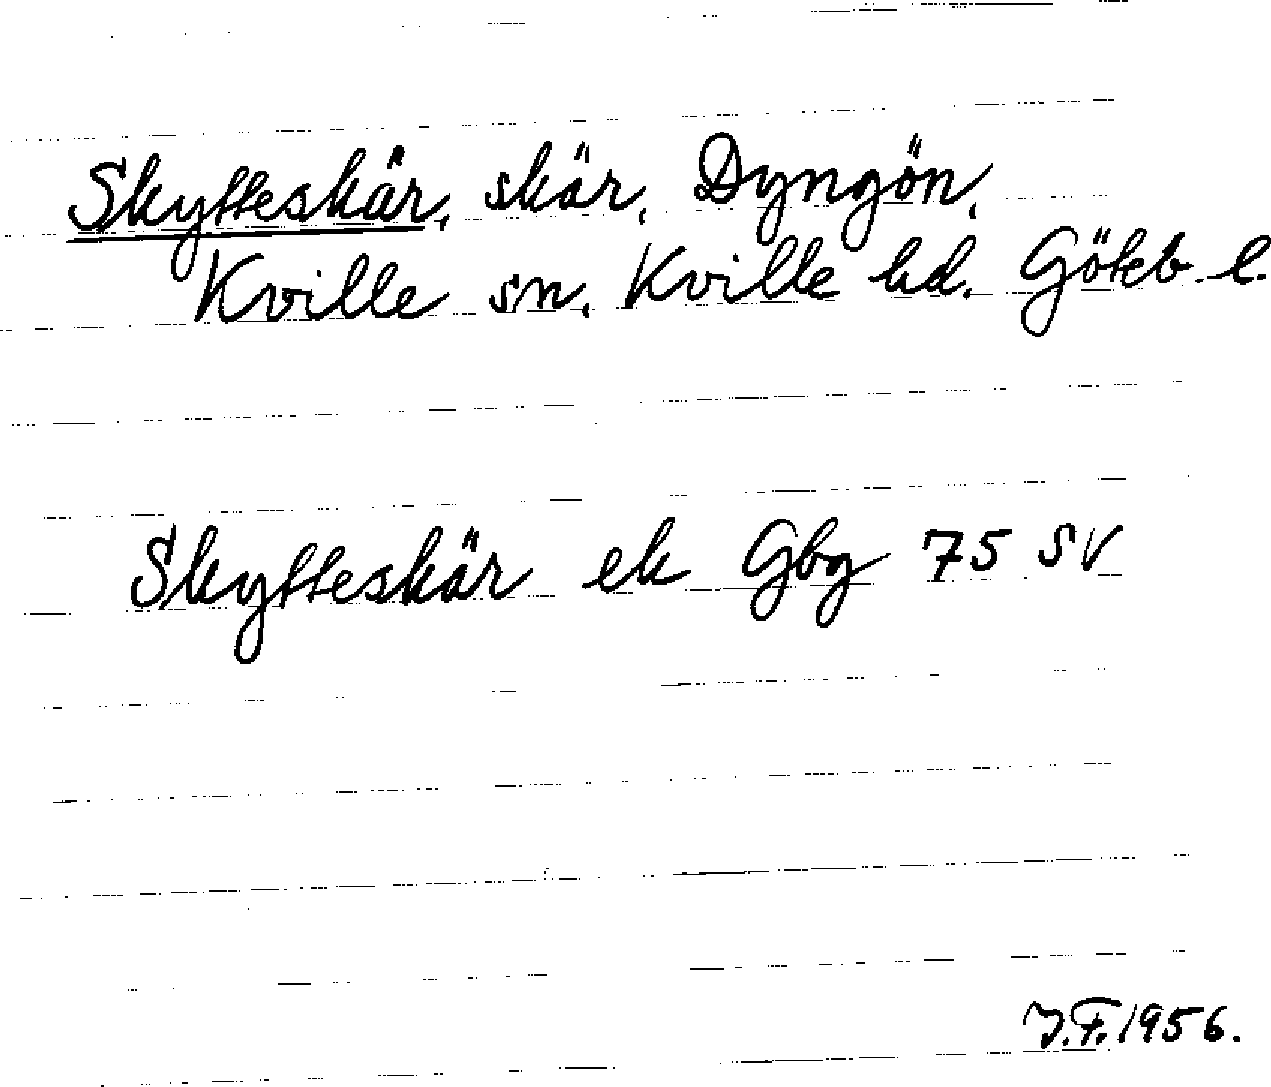 Skytteskär, skär, Dyngön,
Kville sn, Kville hd. Göteb l.
Skytteskär ek Gbg 75 SV
J.F. 1956.